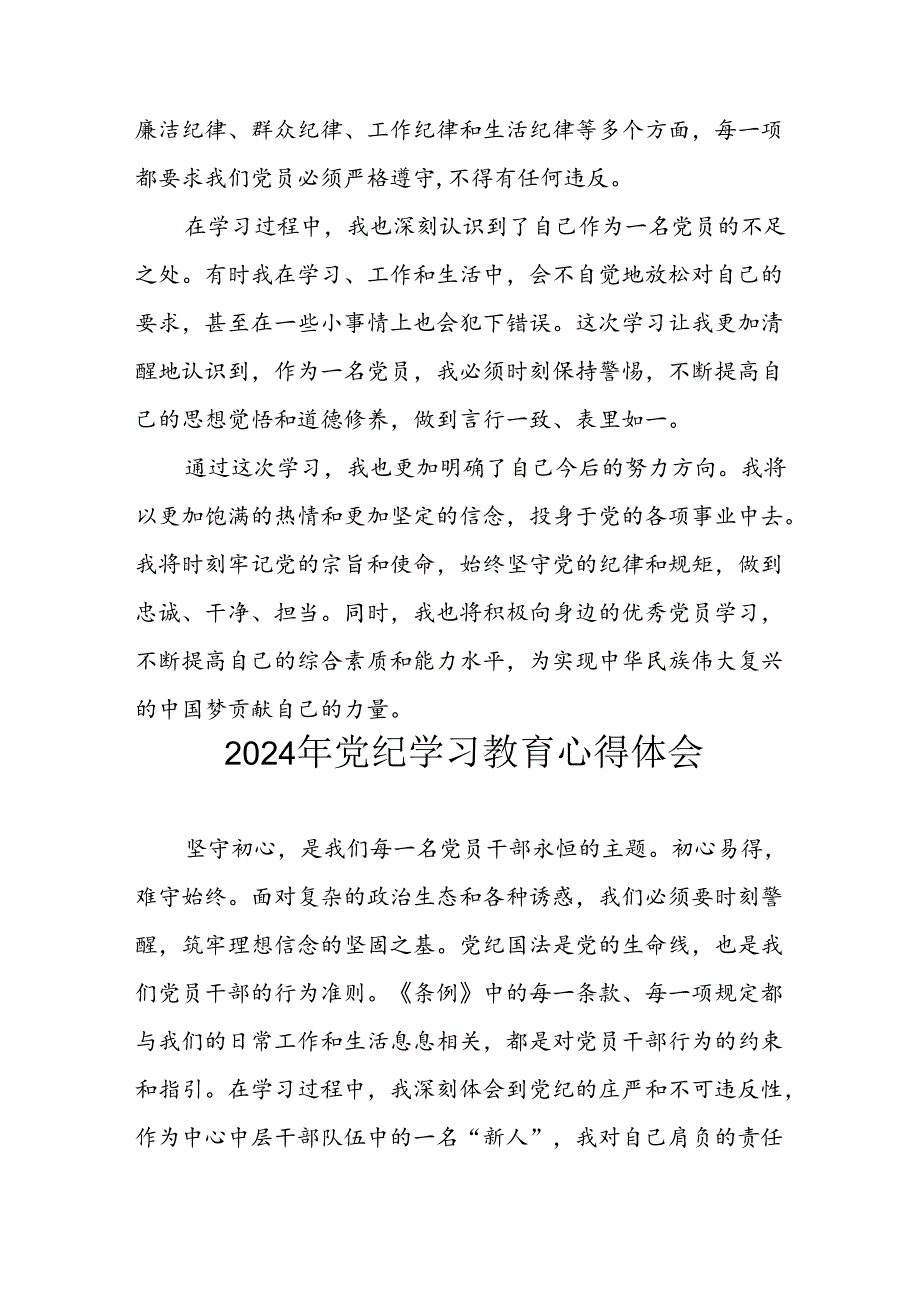 廉洁纪律、群众纪律、工作纪律和生活纪律等多个方面，每一项
都要求我们党员必须严格遵守,不得有任何违反。
在学习过程中，我也深刻认识到了自己作为一名党员的不足
之处。有时我在学习、工作和生活中，会不自觉地放松对自己的
要求，甚至在一些小事情上也会犯下错误。这次学习让我更加清
醒地认识到，作为一名党员，我必须时刻保持警惕，不断提高自
己的思想觉悟和道德修养，做到言行一致、表里如一。
通过这次学习，我也更加明确了自己今后的努力方向。我将
以更加饱满的热情和更加坚定的信念，投身于党的各项事业中去。
我将时刻牢记党的宗旨和使命，始终坚守党的纪律和规矩，做到
忠诚、干净、担当。同时，我也将积极向身边的优秀党员学习，
不断提高自己的综合素质和能力水平，为实现中华民族伟大复兴
的中国梦贡献自己的力量。
2024年党纪学习教育心得体会
坚守初心，是我们每一名党员干部永恒的主题。初心易得，
难守始终。面对复杂的政治生态和各种诱惑，我们必须要时刻警
醒，筑牢理想信念的坚固之基。党纪国法是党的生命线，也是我
们党员干部的行为准则。《条例》中的每一条款、每一项规定都
与我们的日常工作和生活息息相关，都是对党员干部行为的约束
和指引。在学习过程中，我深刻体会到党纪的庄严和不可违反性，
作为中心中层干部队伍中的一名“新人”，我对自己肩负的责任